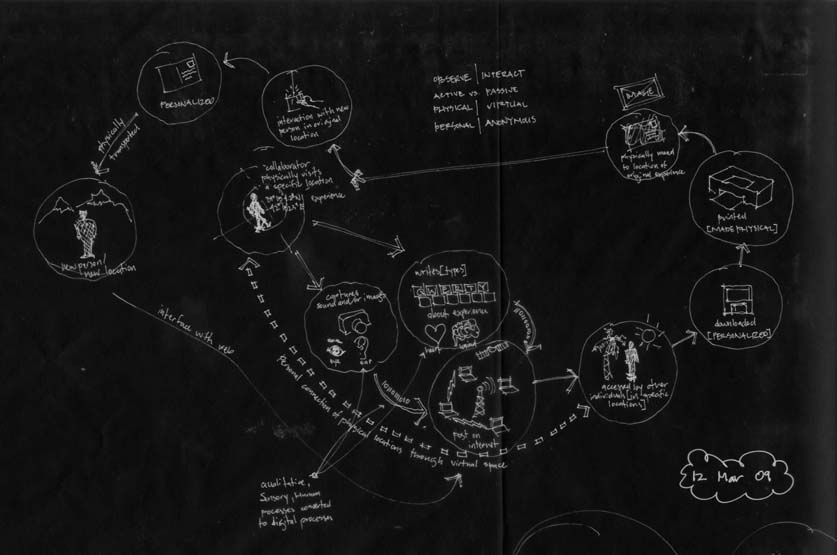 OBSERVE | INTERACT
ACTIVE vs PASSIVE
PHYSICAL | VIRTUAL
PERSONAL | ANONYMOUS
PERSONALIZED
interaction with new
person in original
location
IMAGE
physically moved
to location of
original experience
physically
transported
"collaborator
physically visits
a specific location
experience
new person/
new location
printed
[MADE PHYSICAL]
captured
sound and/or image
eye
ear
writes [types]
QWERTY
about experience
heart
downloaded
[PERSONALIZED]
accessed by other
individuals [in specific
locations]
interface with web
post on
internet
personal connection of physical locations through virtual space
qualitative,
sensory, human
processes converted
to digital processes
12 Mar 09